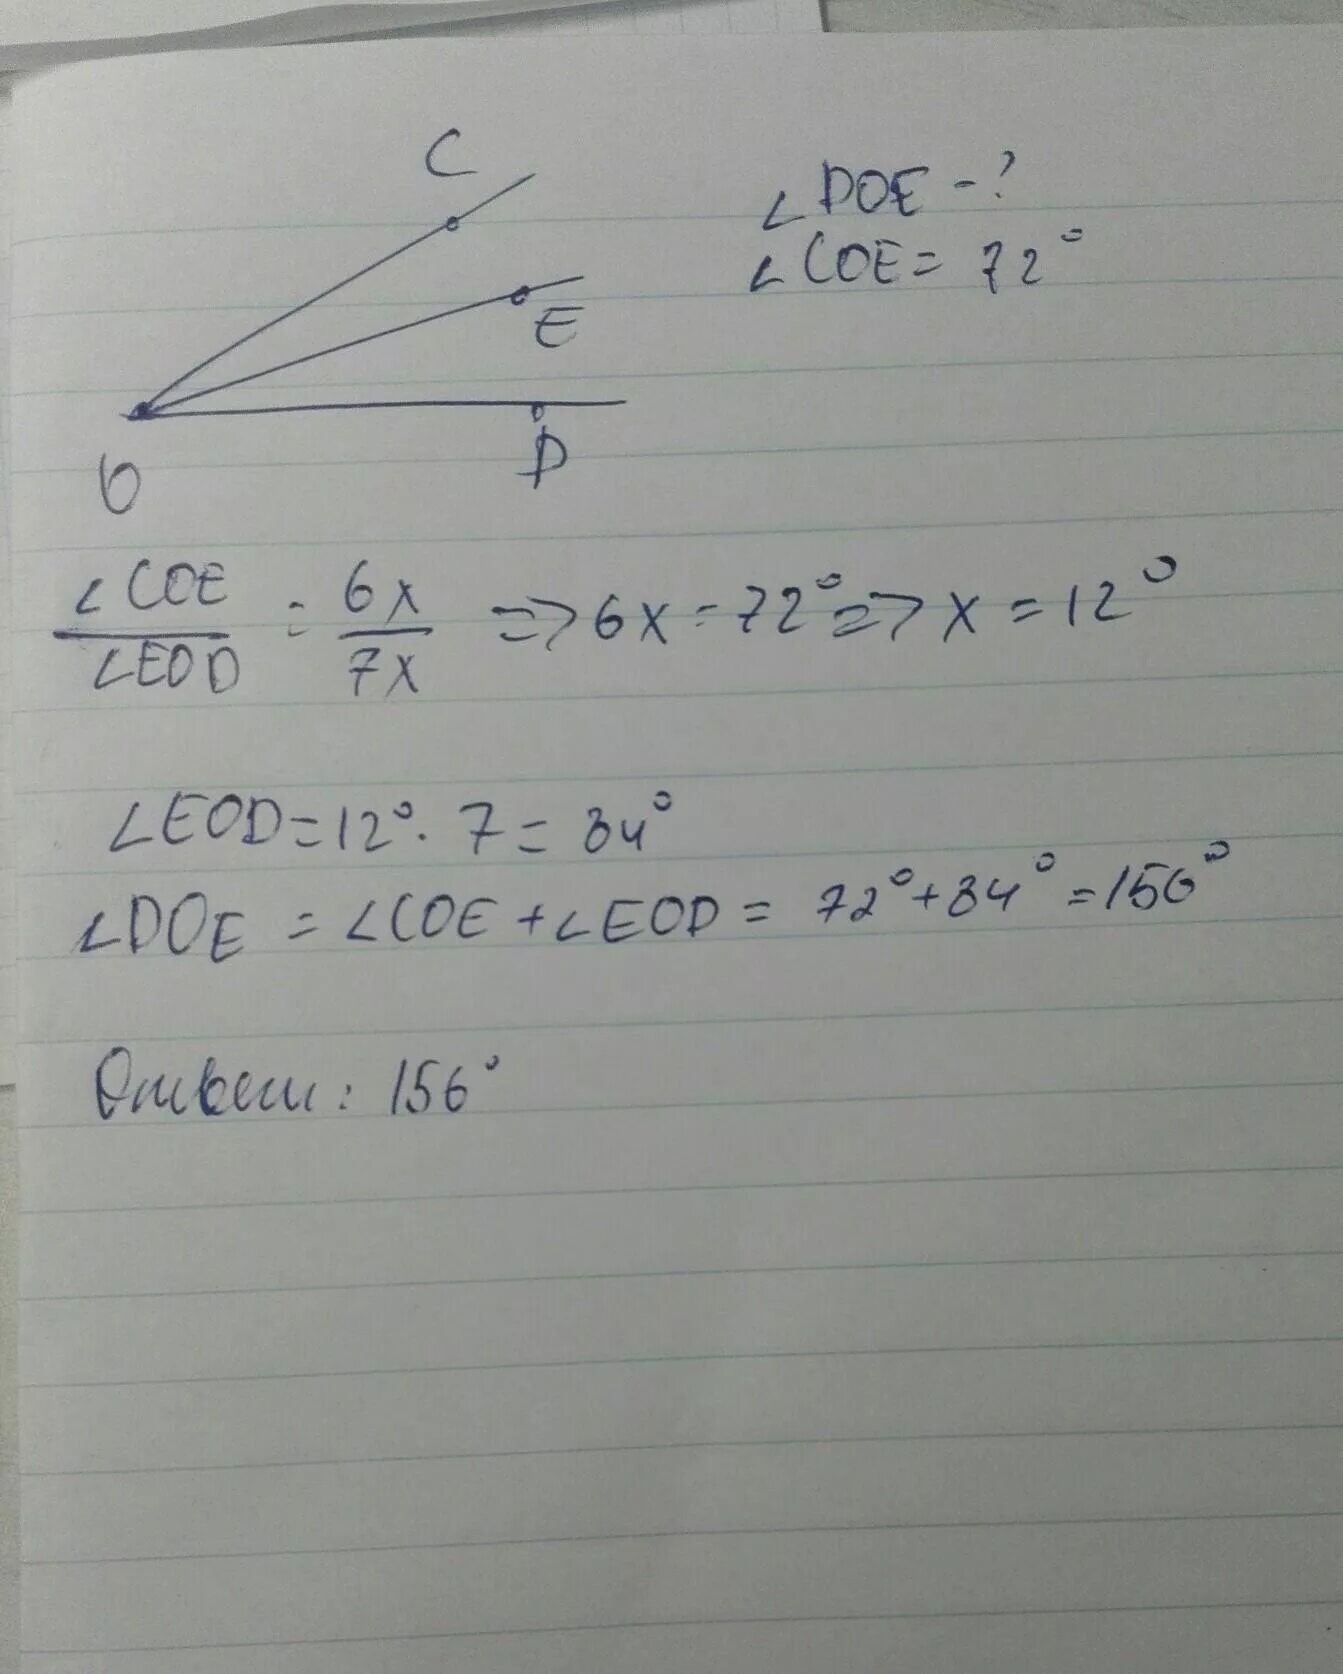 C
∠DOE - ?
∠COE = 72°
E
D
O
∠COE/∠EOD = 6x/7x => 6x = 72° => x = 12°
∠EOD = 12° · 7 = 84°
∠DOE = ∠COE + ∠EOD = 72° + 84° = 156°
Ответ: 156°